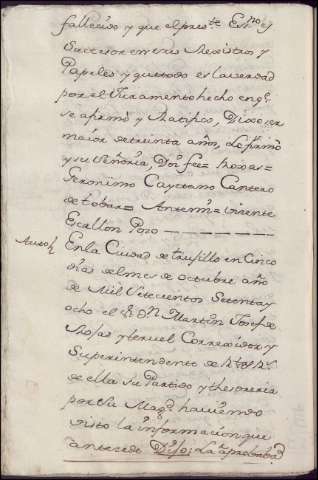 fallecido y que el pres.te Esno es
Succesor en sus Rexistros y
Papeles y que todo es la verdad
por el Juramento hecho en q.e
se afirmó y Ratificó, Dixo ser
maior de treinta años, Lo firmó
y su Señoria, Doi fee= Roxas=
Geronimo Cayetano Cantero
de tobar= Antemi= Vizente
Escallon Pozo
Auto
En la Ciudad de trujillo en Cinco
dias del mes de octubre año
de Mil Setecientos Setenta y
ocho el S.r D.n Martin Josef de
Rojas y teruel Correxidor y
Superintendente de
de ella su Partido y thesoreria
por Su Mag.d haviendo
visto la informacion que
antecede Dijo; La aprobaba